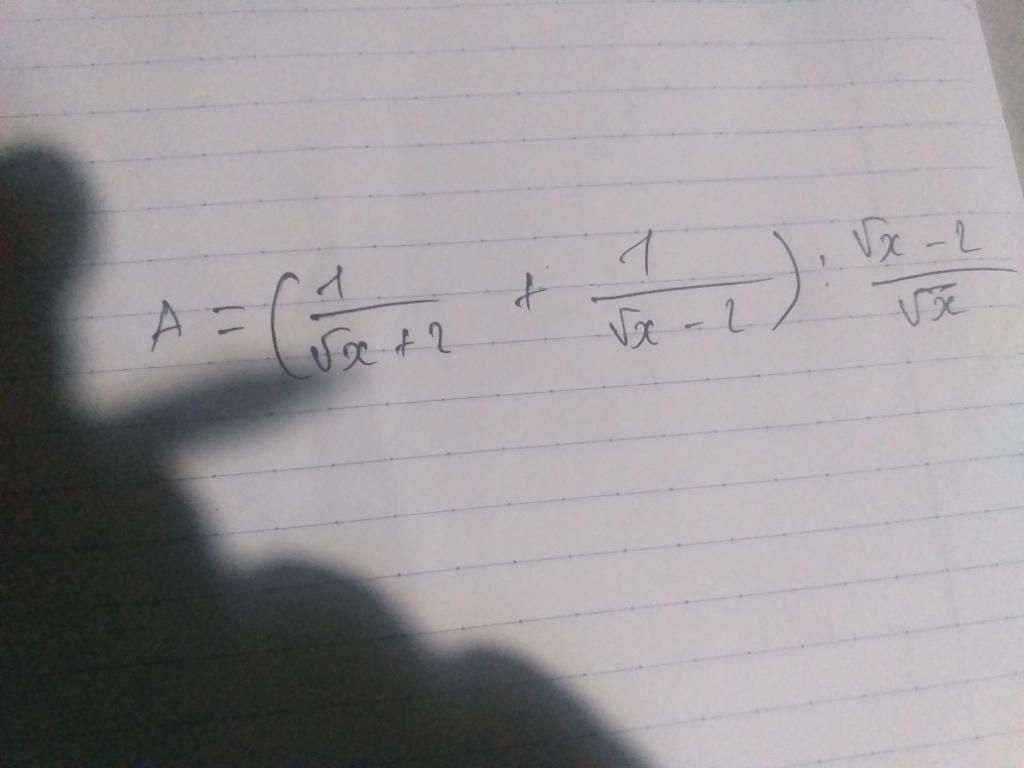 A = (1/(√x + 2) + 1/(√x - 2)) : (√x - 2)/√x